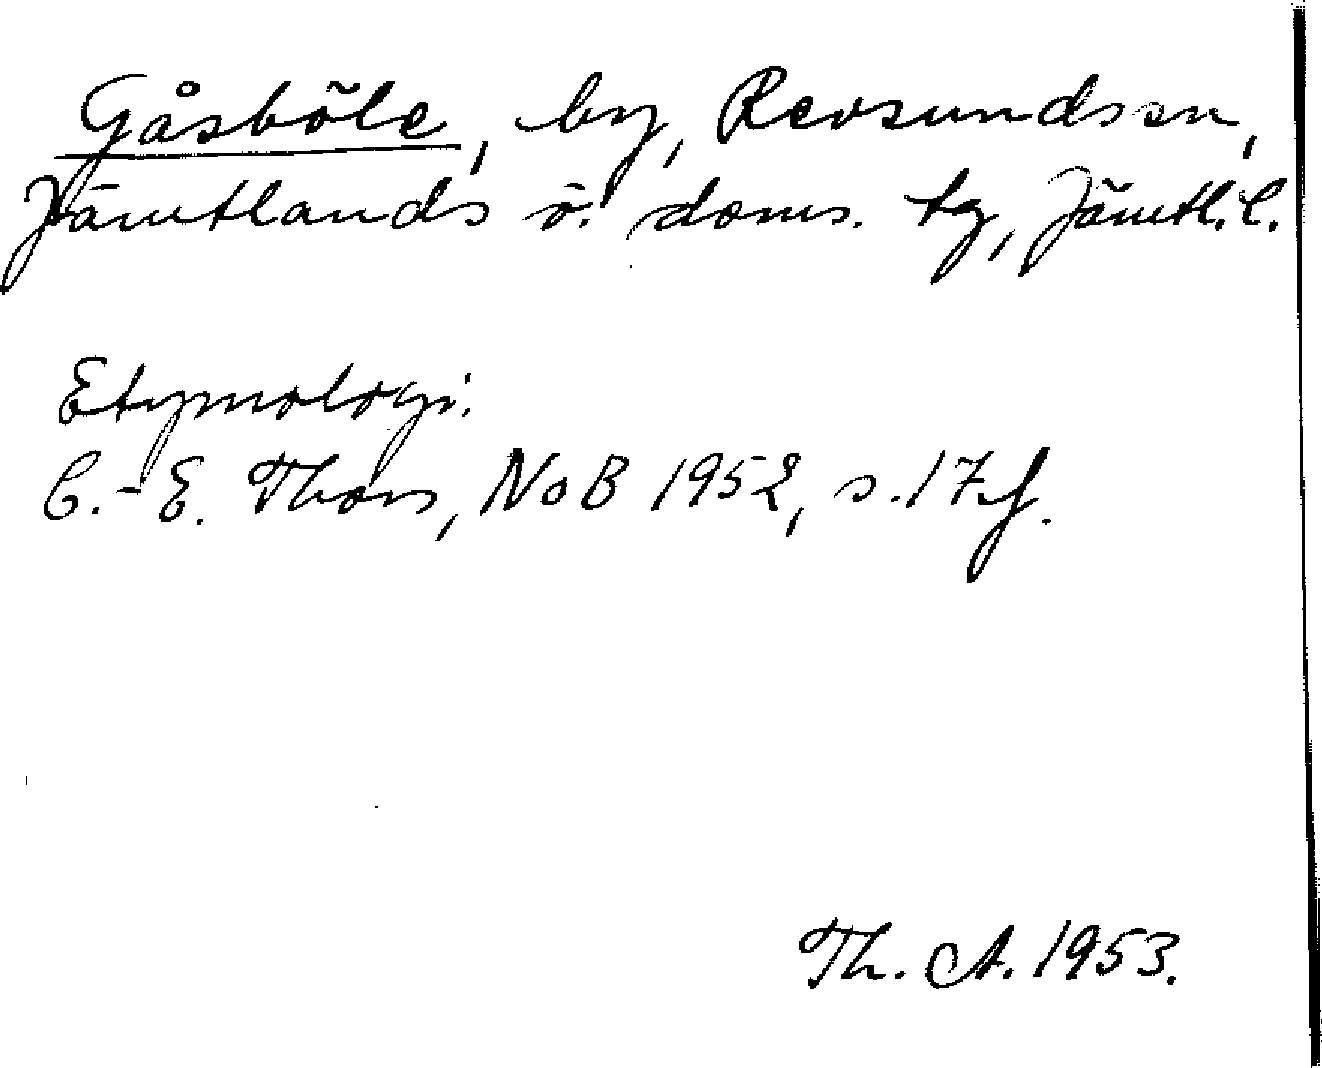 Gåsböle, by, Revsundssn,
Jämtlands ö. doms. tg, Jämtl. l.
Etymologi.
C.-E. Thors, NoB 1952, s. 17 f.
Th. A. 1953.